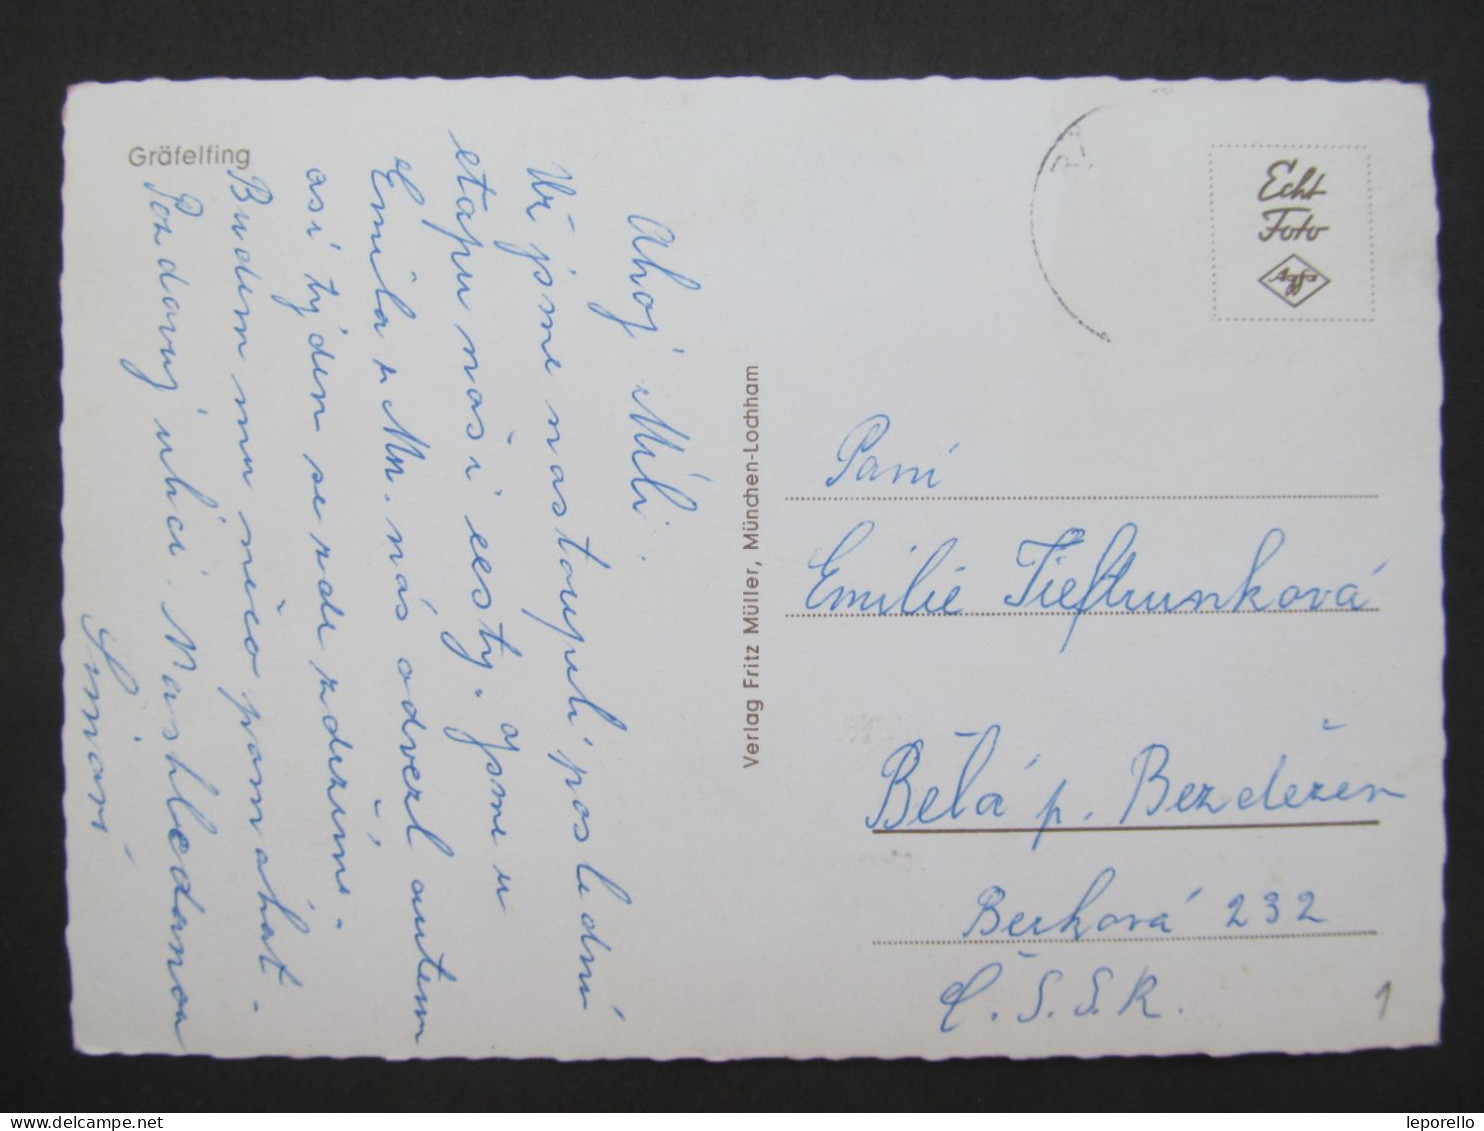 Gräfelfing
Ahoj Míli.
Už jsme nastoupili poslední
etapu naší cesty. Jsme u
Emila z Mn. nás odvezl autem
asi týden se zde zdržíme.
Budem mu něco pomáhat.
Pozdravuj ulici. Nashledanou
Verlag Fritz Müller, München-Lochham
Echt
Foto
Agfa
Paní
Emilie Tieftrunková
Bělá p. Bezdězem
Berková 232
Č.S.S.R.
1
leporello